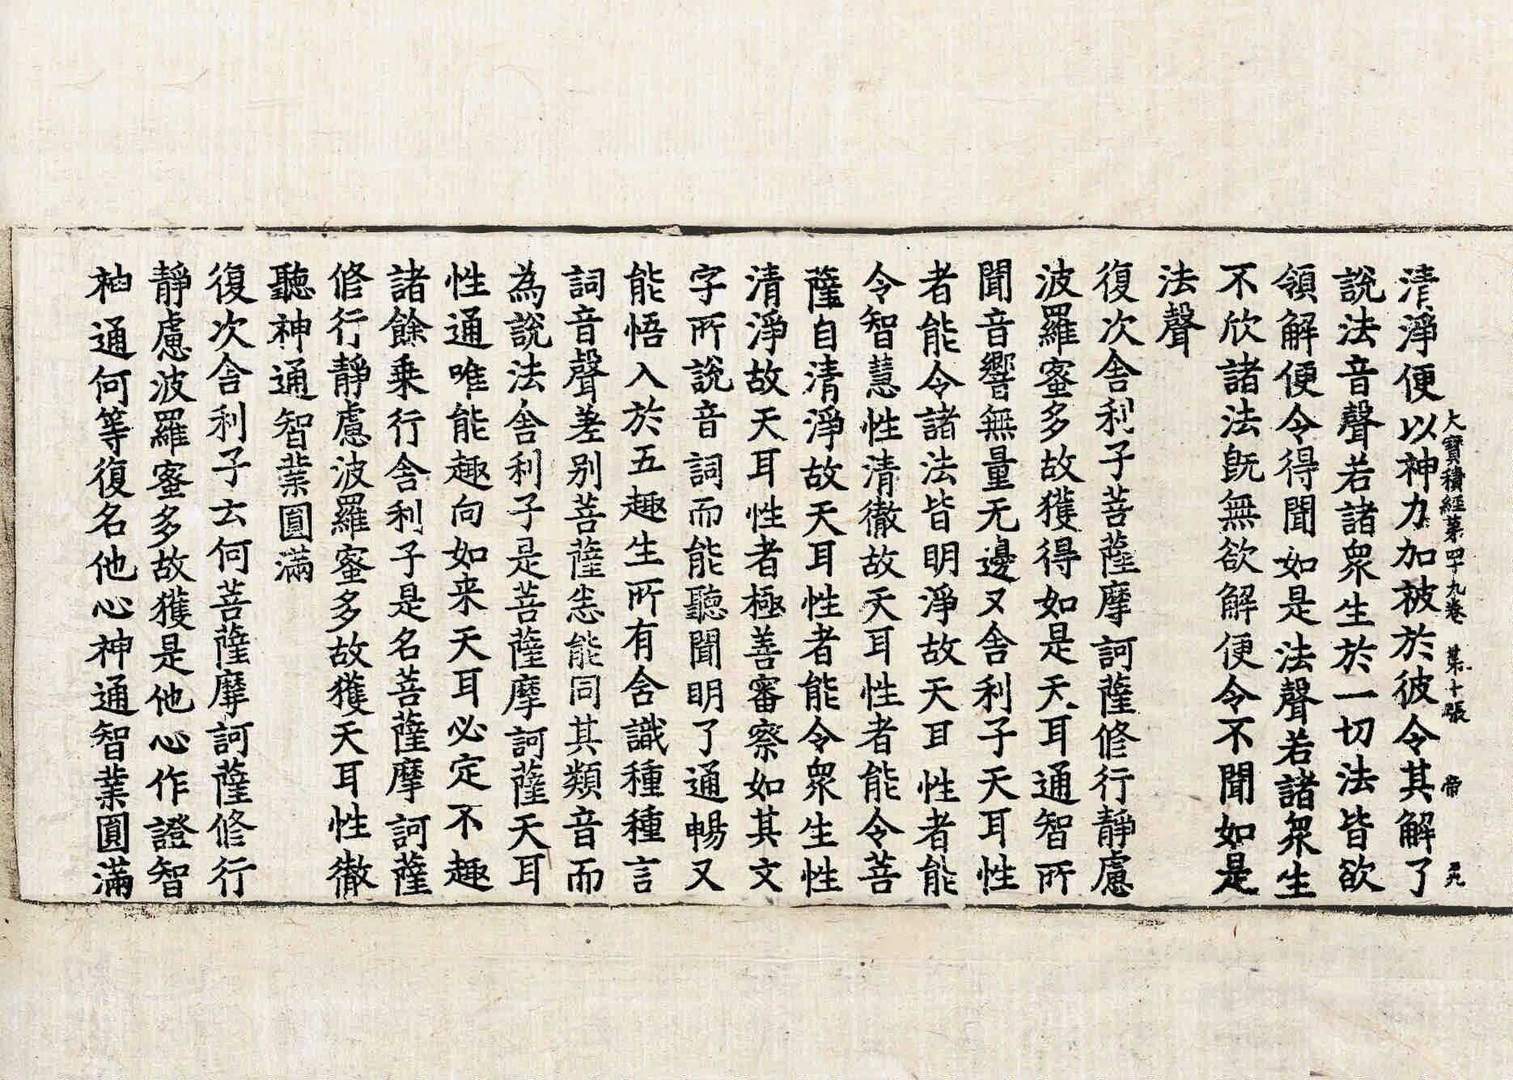 大寶積經第四十九卷 第十張 帝
清淨便以神力加被於彼令其解了
說法音聲若諸衆生於一切法皆欲
領解便令得聞如是法聲若諸衆生
不欣諸法旣無欲解便令不聞如是
法聲
復次舍利子菩薩摩訶薩修行靜慮
波羅蜜多故獲得如是天耳通智所
聞音響無量无邊又舍利子天耳性
者能令諸法皆明淨故天耳性者能
令智慧性清徹故天耳性者能令菩
薩自清淨故天耳性者能令衆生性
清淨故天耳性者極善審察如其文
字所說音詞而能聽聞明了通暢又
能悟入於五趣生所有含識種種言
詞音聲差別菩薩悉能同其類音而
為說法舍利子是菩薩摩訶薩天耳
性通唯能趣向如来天耳必定不趣
諸餘乘行舍利子是名菩薩摩訶薩
修行靜慮波羅蜜多故獲天耳性徹
聽神通智業圓滿
復次舍利子云何菩薩摩訶薩修行
靜慮波羅蜜多故獲是他心作證智
神通何等復名他心神通智業圓滿